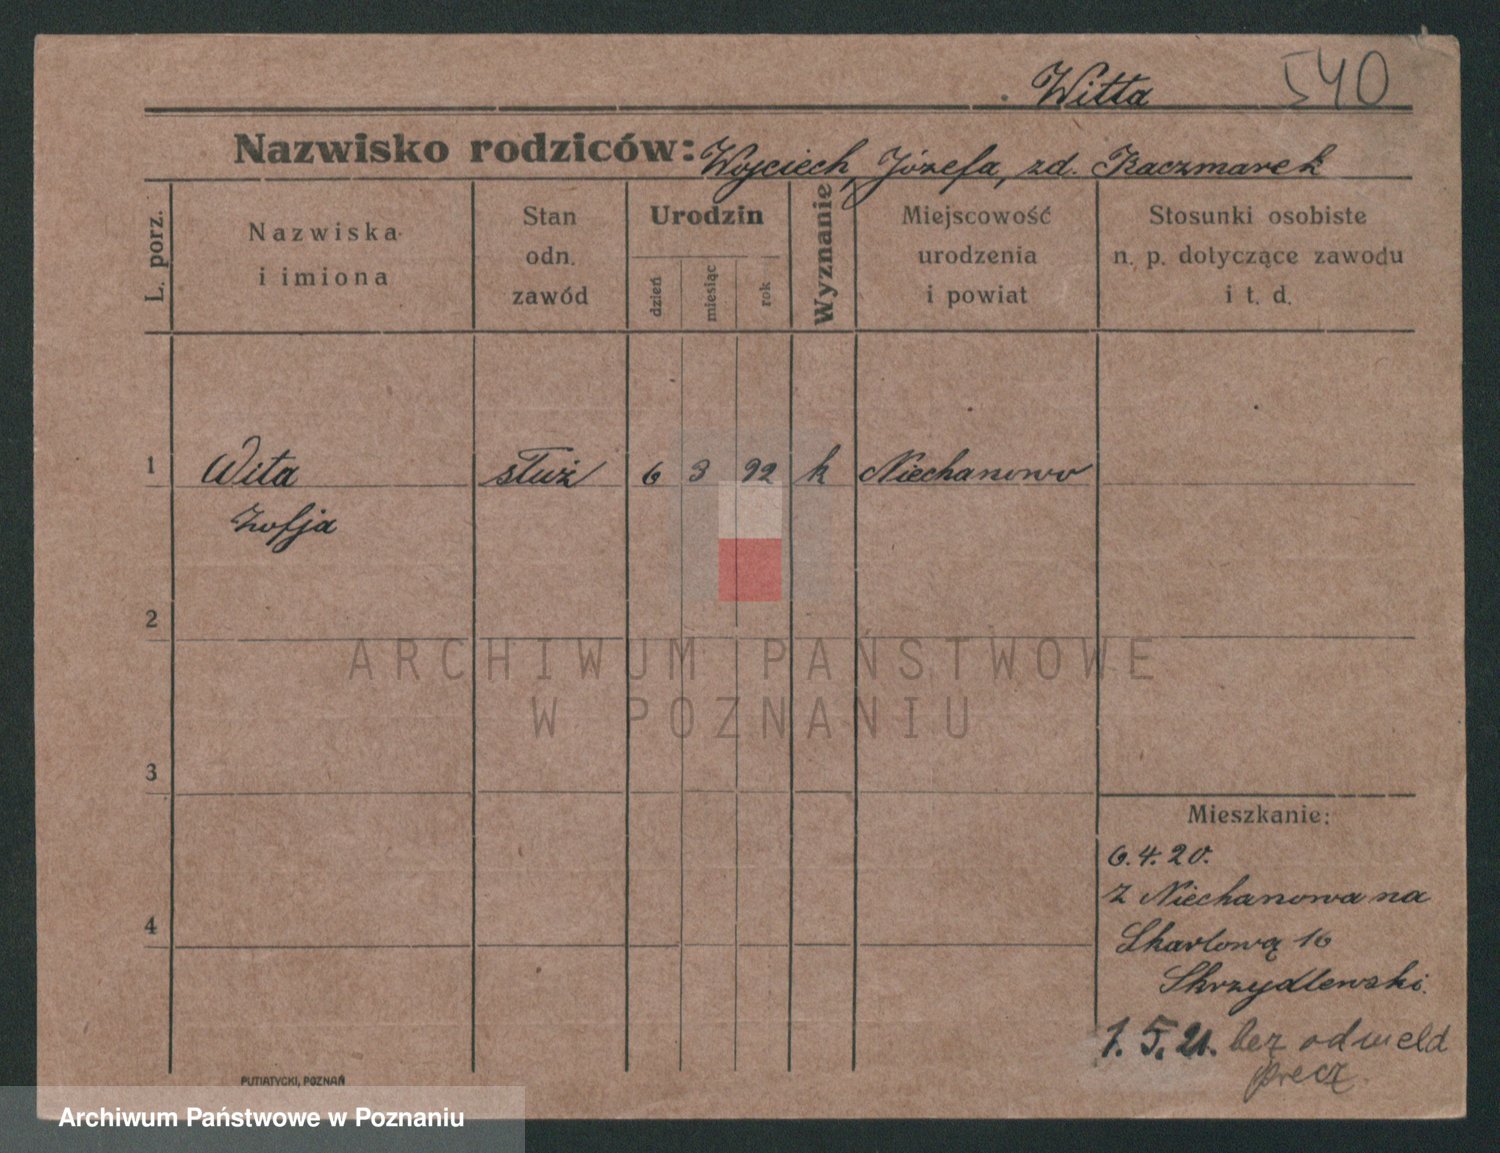 Witta 540
Nazwisko rodziców: Wojciech, Józefa, zd. Kaczmarek
L. porz.
Nazwiska
i imiona
Stan
odn.
zawód
Urodzin
dzień
miesiąc
rok
Wyznanie
Miejscowość
urodzenia
i powiat
Stosunki osobiste
n. p. dotyczące zawodu
i t. d.
1 Wita służ 6 3 92 k Niechanowo
Zofja
2
ARCHIWUM PAŃSTWOWE
W POZNANIU
3
Mieszkanie:
6.4.20.
z Niechanowa na
4
Skarbową 16
Skrzydlewski.
1.5.21. bez odmeld
precz
PUTIATYCKI, POZNAŃ
Archiwum Państwowe w Poznaniu